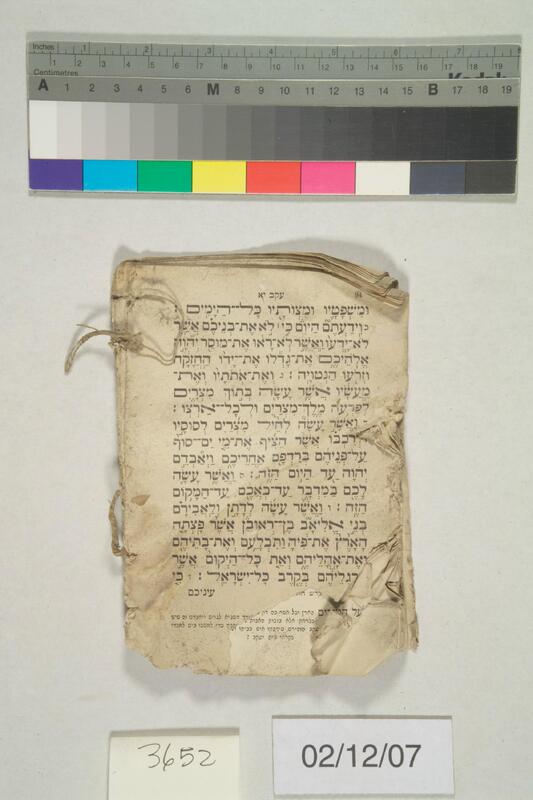 Inches 1 2 3 4 5 6 7 8
Centimetres 1 2 3 4 5 6 7 8 9 10 11 12 13 14 15 16 17 18 19
Kodak
A 1 2 3 4 5 6 M 8 9 10 11 12 13 14 15 B 17 18 19
עקב יא
ומשפטיו ומצותיו כל־הימים:
וידעתם היום כי לא את־בניכם אשר
לא־ידעו ואשר לא־ראו את־מוסר יהוה
אלהיכם את־גדלו את־ידו החזקה
וזרעו הנטויה: ואת־אתתיו ואת־
מעשיו אשר עשה בתוך מצרים
לפרעה מלך־מצרים ולכל־ארצו:
ואשר עשה לחיל מצרים לסוסיו
ולרכבו אשר הציף את־מי ים־סוף
על־פניהם ברדפם אחריכם ויאבדם
יהוה עד היום הזה: ואשר עשה
לכם במדבר עד־באכם עד־המקום
הזה: ואשר עשה לדתן ולאבירם
בני אליאב בן־ראובן אשר פצתה
הארץ את־פיה ותבלעם ואת־בתיהם
ואת־אהליהם ואת כל־היקום אשר
ברגליהם בקרב כל־ישראל: כי
עיניכם
3652
02/12/07